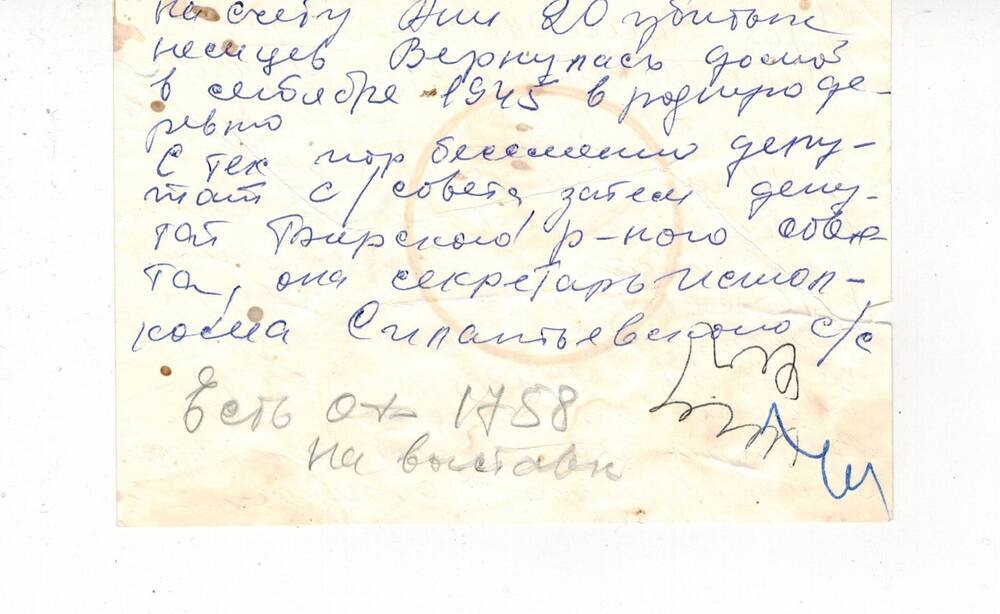 на счету Ани 20 убитых
немцев Вернулась домой
в сентябре 1945 в родную де-
ревню
С тех пор бессменно депу-
тат с/совета, затем депу-
тат Бирского р-ного сове-
та, она секретарь испол-
кома Силантьевского с/с
Есть ох 1758
на выставк